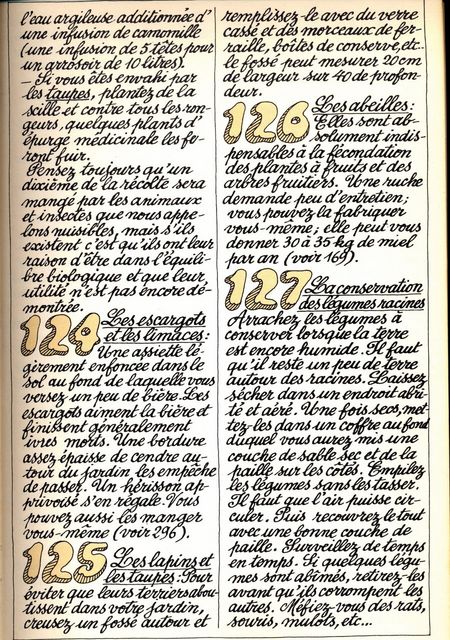 l'eau argileuse additionnée d'
une infusion de camomille
(une infusion de 5 têtes pour
un arrosoir de 10 litres).
– Si vous êtes envahi par
les taupes, plantez de la
scille et contre tous les ron-
geurs, quelques plants d'
épurge médicinale les fe-
ront fuir.
Pensez toujours qu'un
dixième de la récolte sera
mangé par les animaux
et insectes que nous appe-
lons nuisibles, mais s'ils
existent c'est qu'ils ont leur
raison d'être dans l'équili-
bre biologique et que leur
utilité n'est pas encore dé-
montrée.
124 Les escargots
et les limaces:
Une assiette lé-
gèrement enfoncée dans le
sol au fond de laquelle vous
versez un peu de bière. Les
escargots aiment la bière et
finissent généralement
ivres morts. Une bordure
assez épaisse de cendre au-
tour du jardin les empêche
de passer. Un hérisson ap-
privoisé s'en régale. Vous
pouvez aussi les manger
vous-même (voir 296).
125 Les lapins et
les taupes: Pour
éviter que leurs terriers abou-
tissent dans votre jardin,
creusez un fossé autour et
remplissez-le avec du verre
cassé et des morceaux de fer-
raille, boîtes de conserve, etc..
le fossé peut mesurer 20cm
de largeur sur 40 de profon-
deur.
126 Les abeilles:
Elles sont ab-
solument indis-
pensables à la fécondation
des plantes à fruits et des
arbres fruitiers. Une ruche
demande peu d'entretien;
vous pouvez la fabriquer
vous-même; elle peut vous
donner 30 à 35 kg de miel
par an (voir 169).
127 La conservation
des légumes racines
Arrachez les légumes à
conserver lorsque la terre
est encore humide. Il faut
qu'il reste un peu de terre
autour des racines. Laissez
sécher dans un endroit abri-
té et aéré. Une fois secs, met-
tez-les dans un coffre au fond
duquel vous aurez mis une
couche de sable sec et de la
paille sur les côtés. Empilez
les légumes sans les tasser.
Il faut que l'air puisse cir-
culer. Puis recouvrez le tout
avec une bonne couche de
paille. Surveillez de temps
en temps. Si quelques légu-
mes sont abîmés, retirez-les
avant qu'ils corrompent les
autres. Méfiez-vous des rats,
souris, mulots, etc...